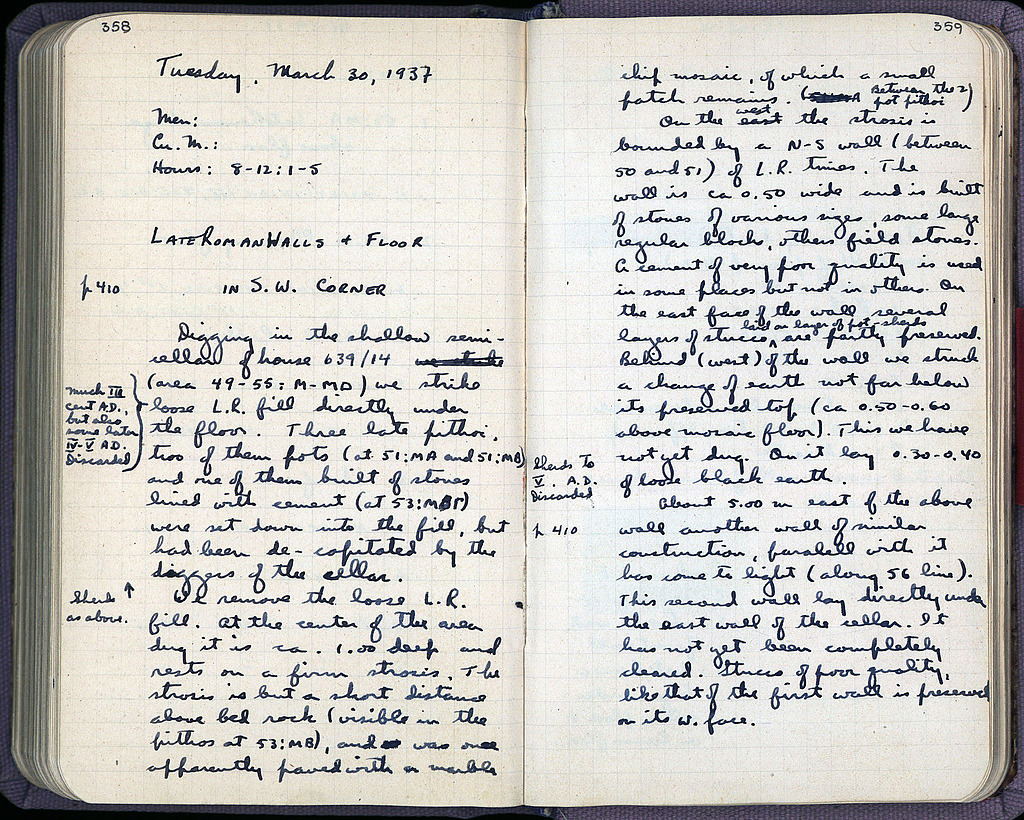 358
Tuesday, March 30, 1937
Men:
Cu. M.:
Hours: 8-12: 1-5
LATE ROMAN WALLS + FLOOR
p 410
IN S.W. CORNER
Digging in the shallow semi-
cellar of house 639/14 we strike
(area 49-55: M-MD) we strike
loose L.R. fill directly under
the floor. Three late pithoi,
two of them pots (at 51:MA and 51:MB)
and one of them built of stones
lined with cement (at 53:MB)
were set down into the fill, but
had been de-capitated by the
diggers of the cellar.
much III
cent A.D.,
but also
some later
IV-V A.D.
Discarded
We remove the loose L.R.
fill. At the center of the area
dug it is ca. 1.00 deep and
rests on a firm strosis. The
strosis is but a short distance
above bed rock (visible in the
pithos at 53:MB), and was once
apparently paved with a marble
Sherds ↑
as above.
359
chip mosaic, of which a small
patch remains. (Between the 2
pot pithoi)
On the east west the strosis is
bounded by a N-S wall (between
50 and 51) of L.R. times. The
wall is ca 0.50 wide and is built
of stones of various sizes, some large
regular blocks, others field stones.
A cement of very poor quality is used
in some places but not in others. On
the east face of the wall several
layers of stucco, laid on layer of pot-sherds are partly preserved.
Behind (west) of the wall we struck
a change of earth not far below
its preserved top (ca 0.50-0.60
above mosaic floor). This we have
not yet dug. On it lay 0.30-0.40
of loose black earth.
Sherds to
V. A.D.
Discarded
p 410
About 5.00 m east of the above
wall another wall of similar
construction, parallell with it
has come to light (along 56 line).
This second wall lay directly under
the east wall of the cellar. It
has not yet been completely
cleared. Stucco of poor quality,
like that of the first wall is preserved
on its w. face.